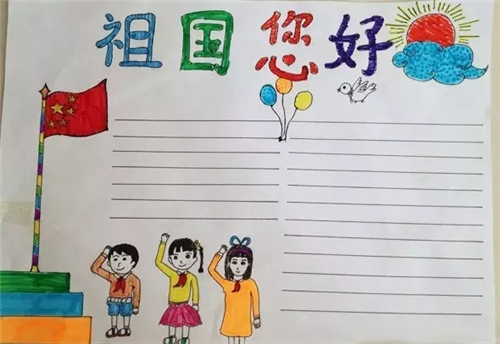 祖国您好